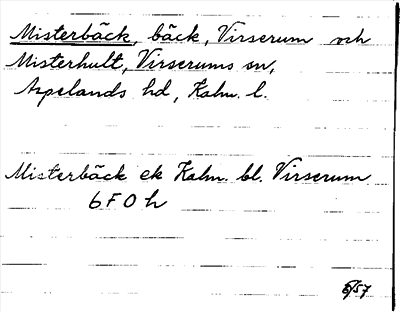 Misterbäck, bäck, Virserum och
Misterhult, Virserums sn,
Aspelands hd, Kalm. l.
Misterbäck ek Kalm. bl. Virserum
6 F 0 h
5/57